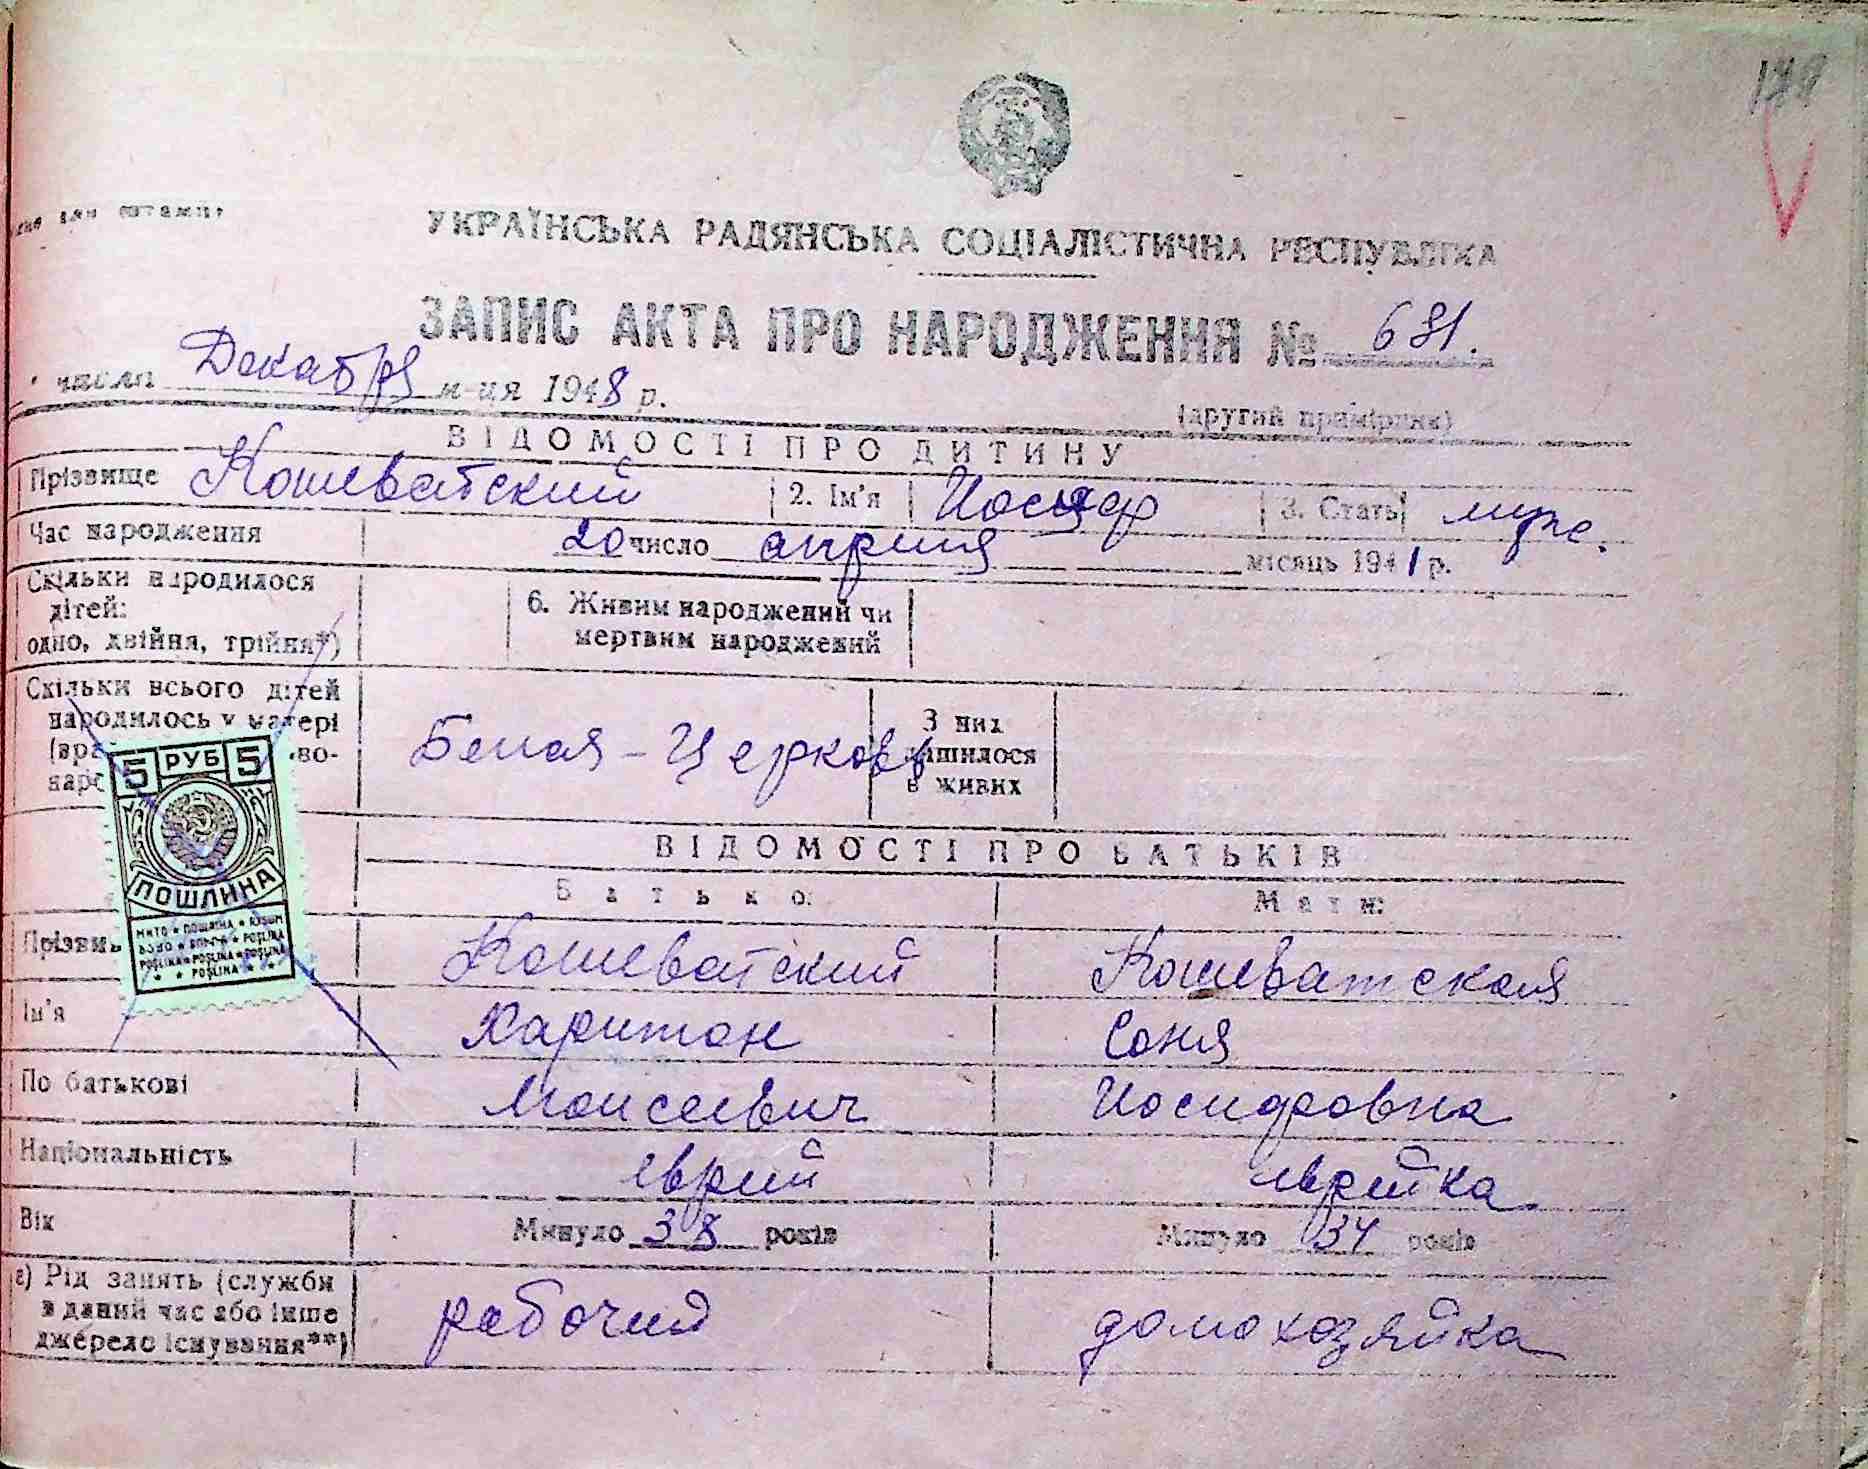 УКРАЇНСЬКА РАДЯНСЬКА СОЦІАЛІСТИЧНА РЕСПУБЛІКА
ЗАПИС АКТА ПРО НАРОДЖЕННЯ № 681.
числа Декабря м-ця 1948 р.
(другий примірник)
ВІДОМОСТІ ПРО ДИТИНУ
Прізвище Кошеватский 2. Ім'я Иосиф 3. Стать муж.
Час народження 20 число апреля місяць 1941 р.
Скільки народилося
дітей:
одно, двійня, трійня*)
6. Живим народжений чи
мертвим народжений
Скільки всього дітей
народилось у матері
Белая-Церковь
З них
лишилося
в живих
5 РУБ 5
ПОШЛИНА
МИТО ПОШЛИНА
POSLINA POSLINA POSLINA
POSLINA
ВІДОМОСТІ ПРО БАТЬКІВ
Батько: Мати:
Кошеватский Кошеватская
Ім'я Харитон Соня
По батькові Моисеевич Иосифовна
Національність еврей еврейка
Вік Минуло 38 років Минуло 34 років
г) Рід занять (служби
в даний час або інше
джерело існування**)
рабочий домохозяйка